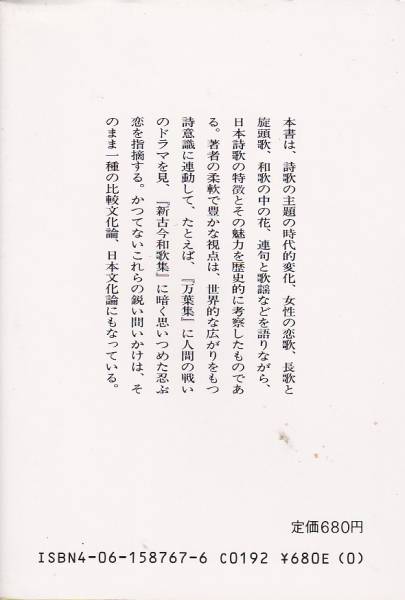 本書は、詩歌の主題の時代的変化、女性の恋歌、長歌と
旋頭歌、和歌の中の花、連句と歌謡などを語りながら、
日本詩歌の特徴とその魅力を歴史的に考察したものであ
る。著者の柔軟で豊かな視点は、世界的な広がりをもつ
詩意識に連動して、たとえば、『万葉集』に人間の戦い
のドラマを見、『新古今和歌集』に暗く思いつめた忍ぶ
恋を指摘する。かつてないこれらの鋭い問いかけは、そ
のまま一種の比較文化論、日本文化論にもなっている。
定価680円
ISBN4-06-158767-6 C0192 ¥680E (0)